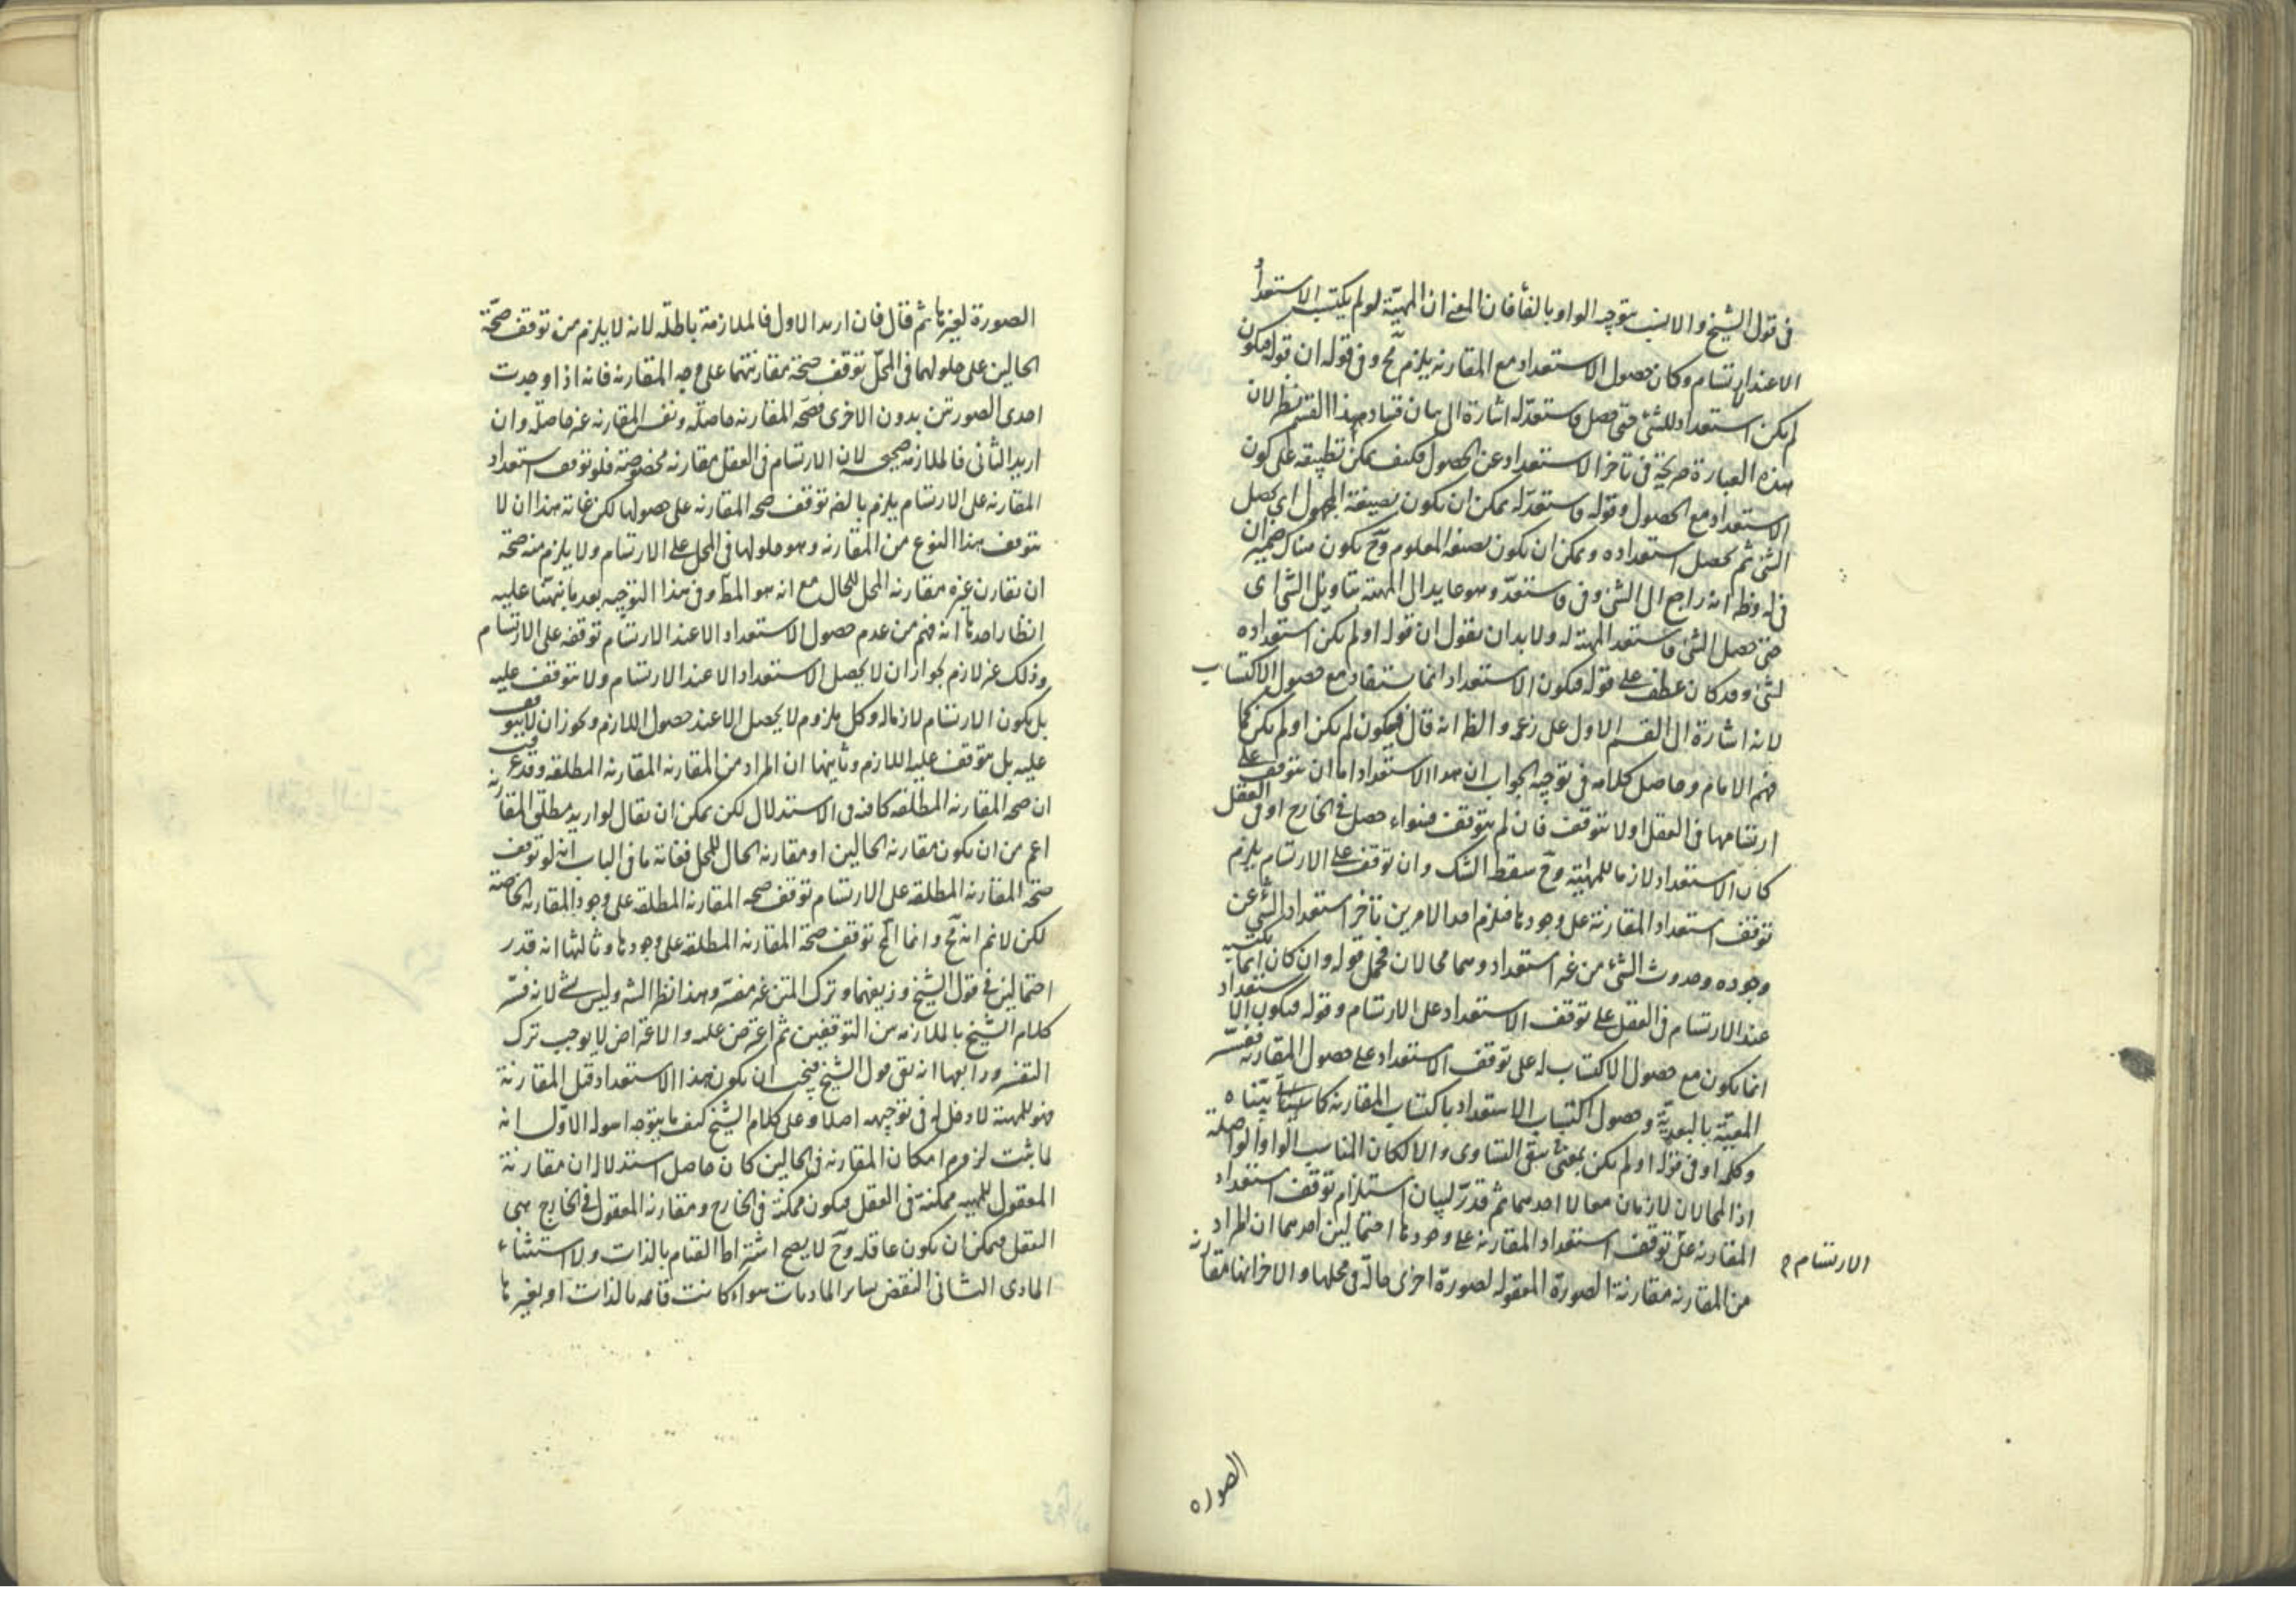 في قول الشيخ والانسب بتوجيه الواو بالفأ فان المعنى ان المهية لو لم يكتسب الاستعداد
الا عند الارتسام وكان حصول الاستعداد مع المقارنه يلزم مح وفي قوله ان قوله فيكون
لم يكن استعداد للشئ حتى حصل فاستعد له اشارة الى بيان فساد هذا القسم نظر لان
هذه العبارة صريحة في تأخر الاستعداد عن الحصول فكيف يمكن تطبيقه على كون
الاستعداد مع الحصول وقوله فاستعد له يمكن ان يكون بصيغة المجهول اي يحصل
الشئ ثم يحصل استعداده ويمكن ان يكون بصيغه المعلوم وح يكون هناك ضميران
في له وظ انه راجع الى الشئ وفي فاستعد وهو عايد الى المهية بتأويل الشئ اى
حتى حصل الشئ فاستعد المهية له ولا بد ان يقول ان قوله او لم يكن استعداده
لشئ وقد كان عطف على قوله فيكون الاستعداد انما يستفاد مع حصول الاكتساب
لانه اشارة الى القسم الاول على زعمه والظ انه قال فيكون لم يكن او لم يكن كما
فهم الامام وحاصل كلامه في توجيه الجواب ان هذا الاستعداد اما ان يتوقف على
ارتسامها في العقل او لا يتوقف فان لم يتوقف فسواء حصل في الخارج او في العقل
كان الاستعداد لازما للمهية وح سقط الشك وان توقف على الارتسام يلزم
توقف استعداد المقارنة على وجودها فيلزم احد الامرين تأخر استعداد الشئ عن
وجوده وحدوث الشئ من غير استعداد وهما محالان فحمل قوله وان كان انما يكتسبه
عند الارتسام في العقل على توقف الاستعداد على الارتسام وقوله فيكون الاستعداد
انما يكون مع حصول الاكتساب له على توقف الاستعداد على حصول المقارنه ففسر
المعية بالبعدية وحصول اكتساب الاستعداد باكتساب المقارنه كما بيناه
وكلمه او في قوله او لم يكن بمعنى يبقى التساوى والا لكان المناسب الواو الواصلة
اذ المحالان لازمان معا لا احدهما ثم قدر لبيان استلزام توقف استعداد
المقارنه على توقف استعداد المقارنه على وجودها احتمالين احدهما ان المراد
الارتسام م
من المقارنه مقارنة الصورة المعقوله لصورة اخرى حالة في محلها والاخر انها مقارنه
الصوره
الصورة لغيرها ثم قال فان اريد الاول فالملازمة باطله لانه لا يلزم من توقف صحة
الحالين على حلولهما في المحل توقف صحة مقارنتهما على وجه المقارنه فانه اذا وجدت
احدى الصورتين بدون الاخرى فصحه المقارنه حاصله ونفس المقارنه غير حاصله وان
اريد الثانى فالملازمه صحيحه لان الارتسام في العقل مقارنه مخصوصة فلو توقف استعداد
المقارنه على الارتسام يلزم بالضر توقف صحه المقارنه على حصولها لكن غايته هذا ان لا
يتوقف هذا النوع من المقارنه وهو حلولها في المحل على الارتسام ولا يلزم منه صحة
ان تقارن غيره مقارنه المحل للحال مع انه هو المط وفي هذا التوجيه بعد ما نبهنا عليه
انظار احدها انه فهم من عدم حصول الاستعداد الا عند الارتسام توقفه على الارتسام
وذلك غير لازم لجواز ان لا يحصل الاستعداد الا عند الارتسام ولا يتوقف عليه
بل يكون الارتسام لازما له وكل ملزوم لا يحصل الا عند حصول اللازم ويجوز ان لا يتوقف
عليه بل يتوقف عليه اللازم وثانيها ان المراد من المقارنه المقارنه المطلقه وقد عرفت
ان صحه المقارنه المطلقه كافيه في الاستدلال لكن يمكن ان يقال لو اريد مطلق المقارنه
اعم من ان يكون مقارنه الحالين او مقارنه الحال للمحل فغاية ما في الباب انه لو توقف
صحة المقارنه المطلقه على الارتسام توقف صحه المقارنه المطلقه على وجود المقارنه الخاصة
لكن لا نم انه مح وانما المح توقف صحة المقارنه المطلقه على وجودها وثالثها انه قدر
احتمالين في قول الشيخ وزيفهما وترك المتن غير مفسر وهذا نظر الشه وليس بشئ لانه فسر
كلام الشيخ بالملازمه من التوقفين ثم اعترض عليه والاعتراض لا يوجب ترك
التفسير ورابعها انه بقى قول الشيخ فيجب ان يكون هذا الاستعداد قبل المقارنة
فهو للمهية لا دخل له في توجيهه اصلا وعلى كلام الشيخ كيف ما يتوجه اسوله الاول انه
لما ثبت لزوم امكان المقارنه في الحالين كان حاصل استدلاله ان مقارنة
المعقول للمهيه ممكنة في العقل فيكون ممكنة في الخارج ومقارنه المعقول في الخارج هى
التعقل فيمكن ان يكون عاقله وح لا يصح اشتراط القيام بالذات ولا استثناء
المادى الثانى النقض بساير الماديات سواء كانت قايمه بالذات او بغيرها